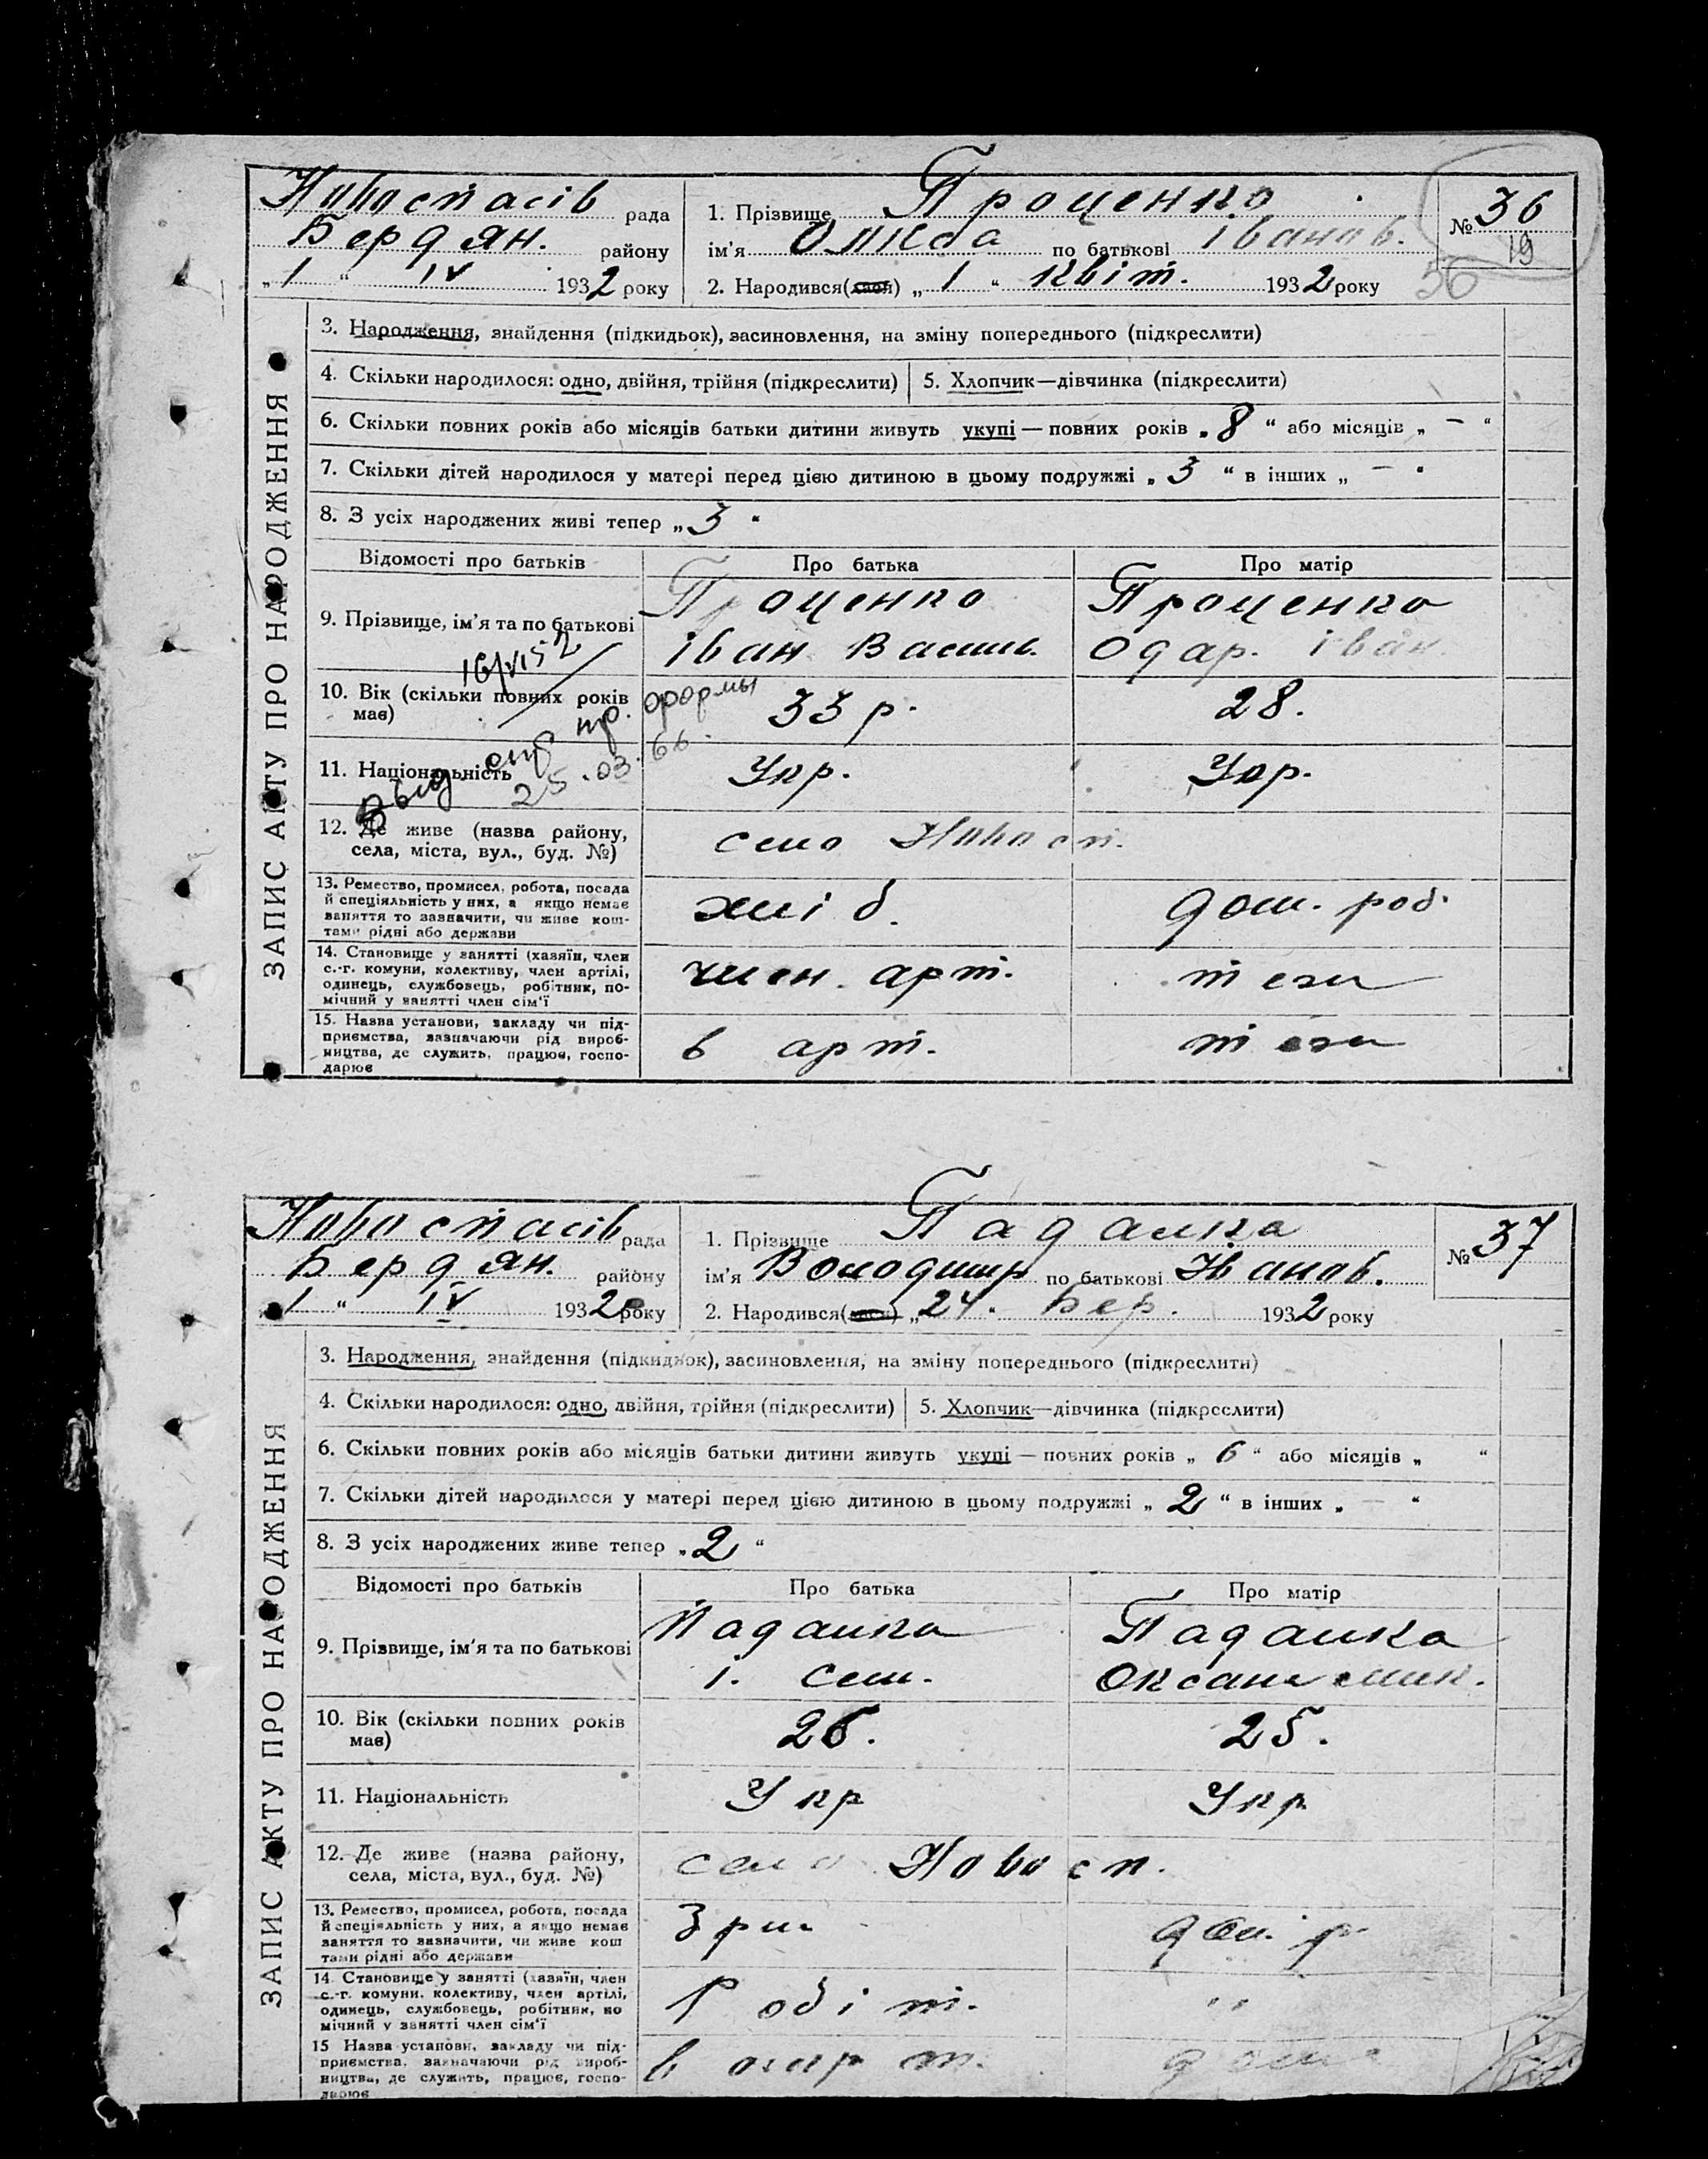 Новоспасів рада
Бердян. району
„ 1 “ IV 1932 року
1. Прізвище Проценко
ім'я Олкса по батькові Іванов.
2. Народився „ 1 “ квіт. 1932 року
№ 36
19
36
ЗАПИС АКТУ ПРО НАРОДЖЕННЯ
3. Народження, знайдення (підкидьок), засиновлення, на зміну попереднього (підкреслити)
4. Скільки народилося: одно, двійня, трійня (підкреслити)
5. Хлопчик—дівчинка (підкреслити)
6. Скільки повних років або місяців батьки дитини живуть укупі — повних років „ 8 “ або місяців „ — “
7. Скільки дітей народилося у матері перед цією дитиною в цьому подружжі „ 3 “ в інших „ — “
8. З усіх народжених живі тепер „ 3 “
Відомості про батьків
Про батька
Про матір
9. Прізвище, ім'я та по батькові
Проценко
Іван Васил.
Проценко
Одар. Іван.
10. Вік (скільки повних років
має)
33 р.
28.
11. Національність
Укр.
Укр.
25.03.66.
12. Де живе (назва району,
села, міста, вул., буд. №)
село Новосп.
13. Ремество, промисел, робота, посада
й спеціяльність у них, а якщо немає
заняття то зазначити, чи живе кош-
тами рідні або держави
хліб.
дом. роб.
14. Становище у занятті (хазяїн, член
с.-г. комуни, колективу, член артілі,
одинець, службовець, робітник, по-
мічний у занятті член сім'ї
член. арт.
теж
15. Назва установи, закладу чи під-
приємства, зазначаючи рід вироб-
ництва, де служить, працює, госпо-
дарює
в арт.
теж
Новоспасів рада
Бердян. району
„ 1 “ IV 1932 року
1. Прізвище Падалка
ім'я Володимир по батькові Іванов.
2. Народився „ 24. Бер. 1932 року
№ 37
ЗАПИС АКТУ ПРО НАРОДЖЕННЯ
3. Народження, знайдення (підкидьок), засиновлення, на зміну попереднього (підкреслити)
4. Скільки народилося: одно, двійня, трійня (підкреслити)
5. Хлопчик—дівчинка (підкреслити)
6. Скільки повних років або місяців батьки дитини живуть укупі — повних років „ 6 “ або місяців „ “
7. Скільки дітей народилося у матері перед цією дитиною в цьому подружжі „ 2 “ в інших „ — “
8. З усіх народжених живе тепер „ 2 “
Відомості про батьків
Про батька
Про матір
9. Прізвище, ім'я та по батькові
Падалка
І. Сем.
Падалка
Оксана
10. Вік (скільки повних років
має)
26.
25.
11. Національність
Укр
Укр
12. Де живе (назва району,
села, міста, вул., буд. №)
село Новосп.
13. Ремество, промисел, робота, посада
й спеціяльність у них, а якщо немає
заняття то зазначити, чи живе кош
тами рідні або держави
дом. р
14. Становище у занятті (хазяїн, член
с.-г. комуни, колективу, член артілі,
одинець, службовець, робітник, по
мічний у занятті член сім'ї
Робіт.
15 Назва установи, закладу чи під-
приємства, зазначаючи рід вироб-
ництва, де служить, працює, госпо-
дарює